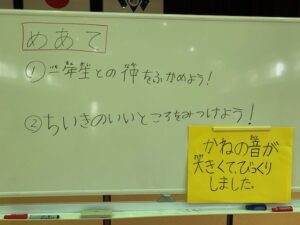 めあて
①一年生との仲をふかめよう！
②ちいきのいいところをみつけよう！
かねの音が
大きくて、びっくり
しました。